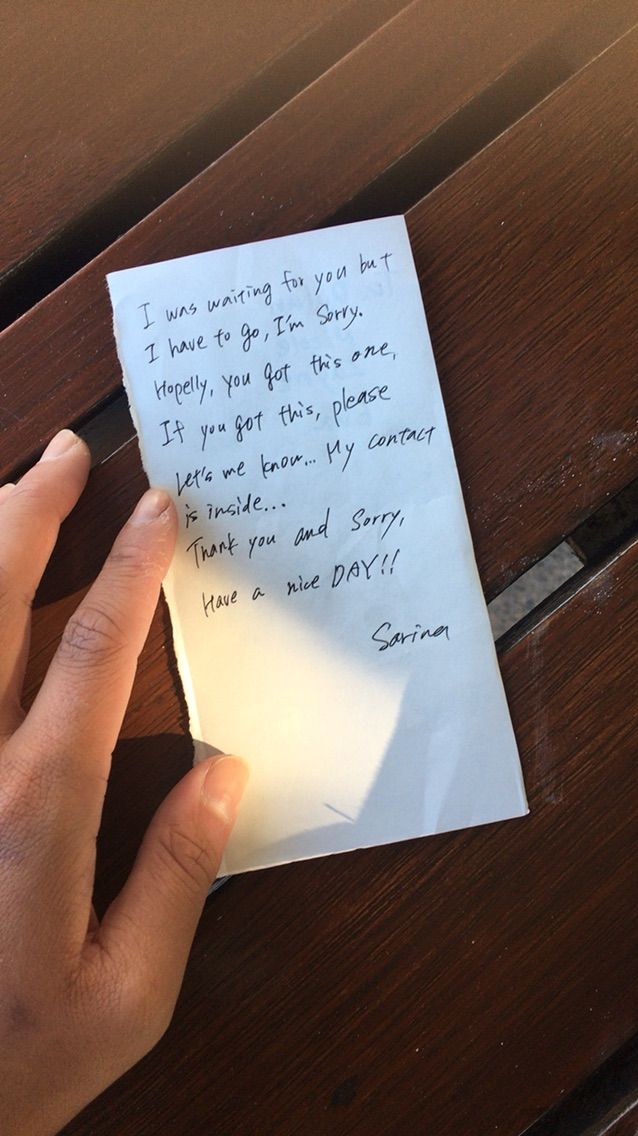 I was waiting for you but
I have to go, I'm Sorry.
Hopelly, you got this one,
If you got this, please
Let's me know... My contact
is inside...
Thank you and Sorry,
Have a nice DAY!!
Sarina